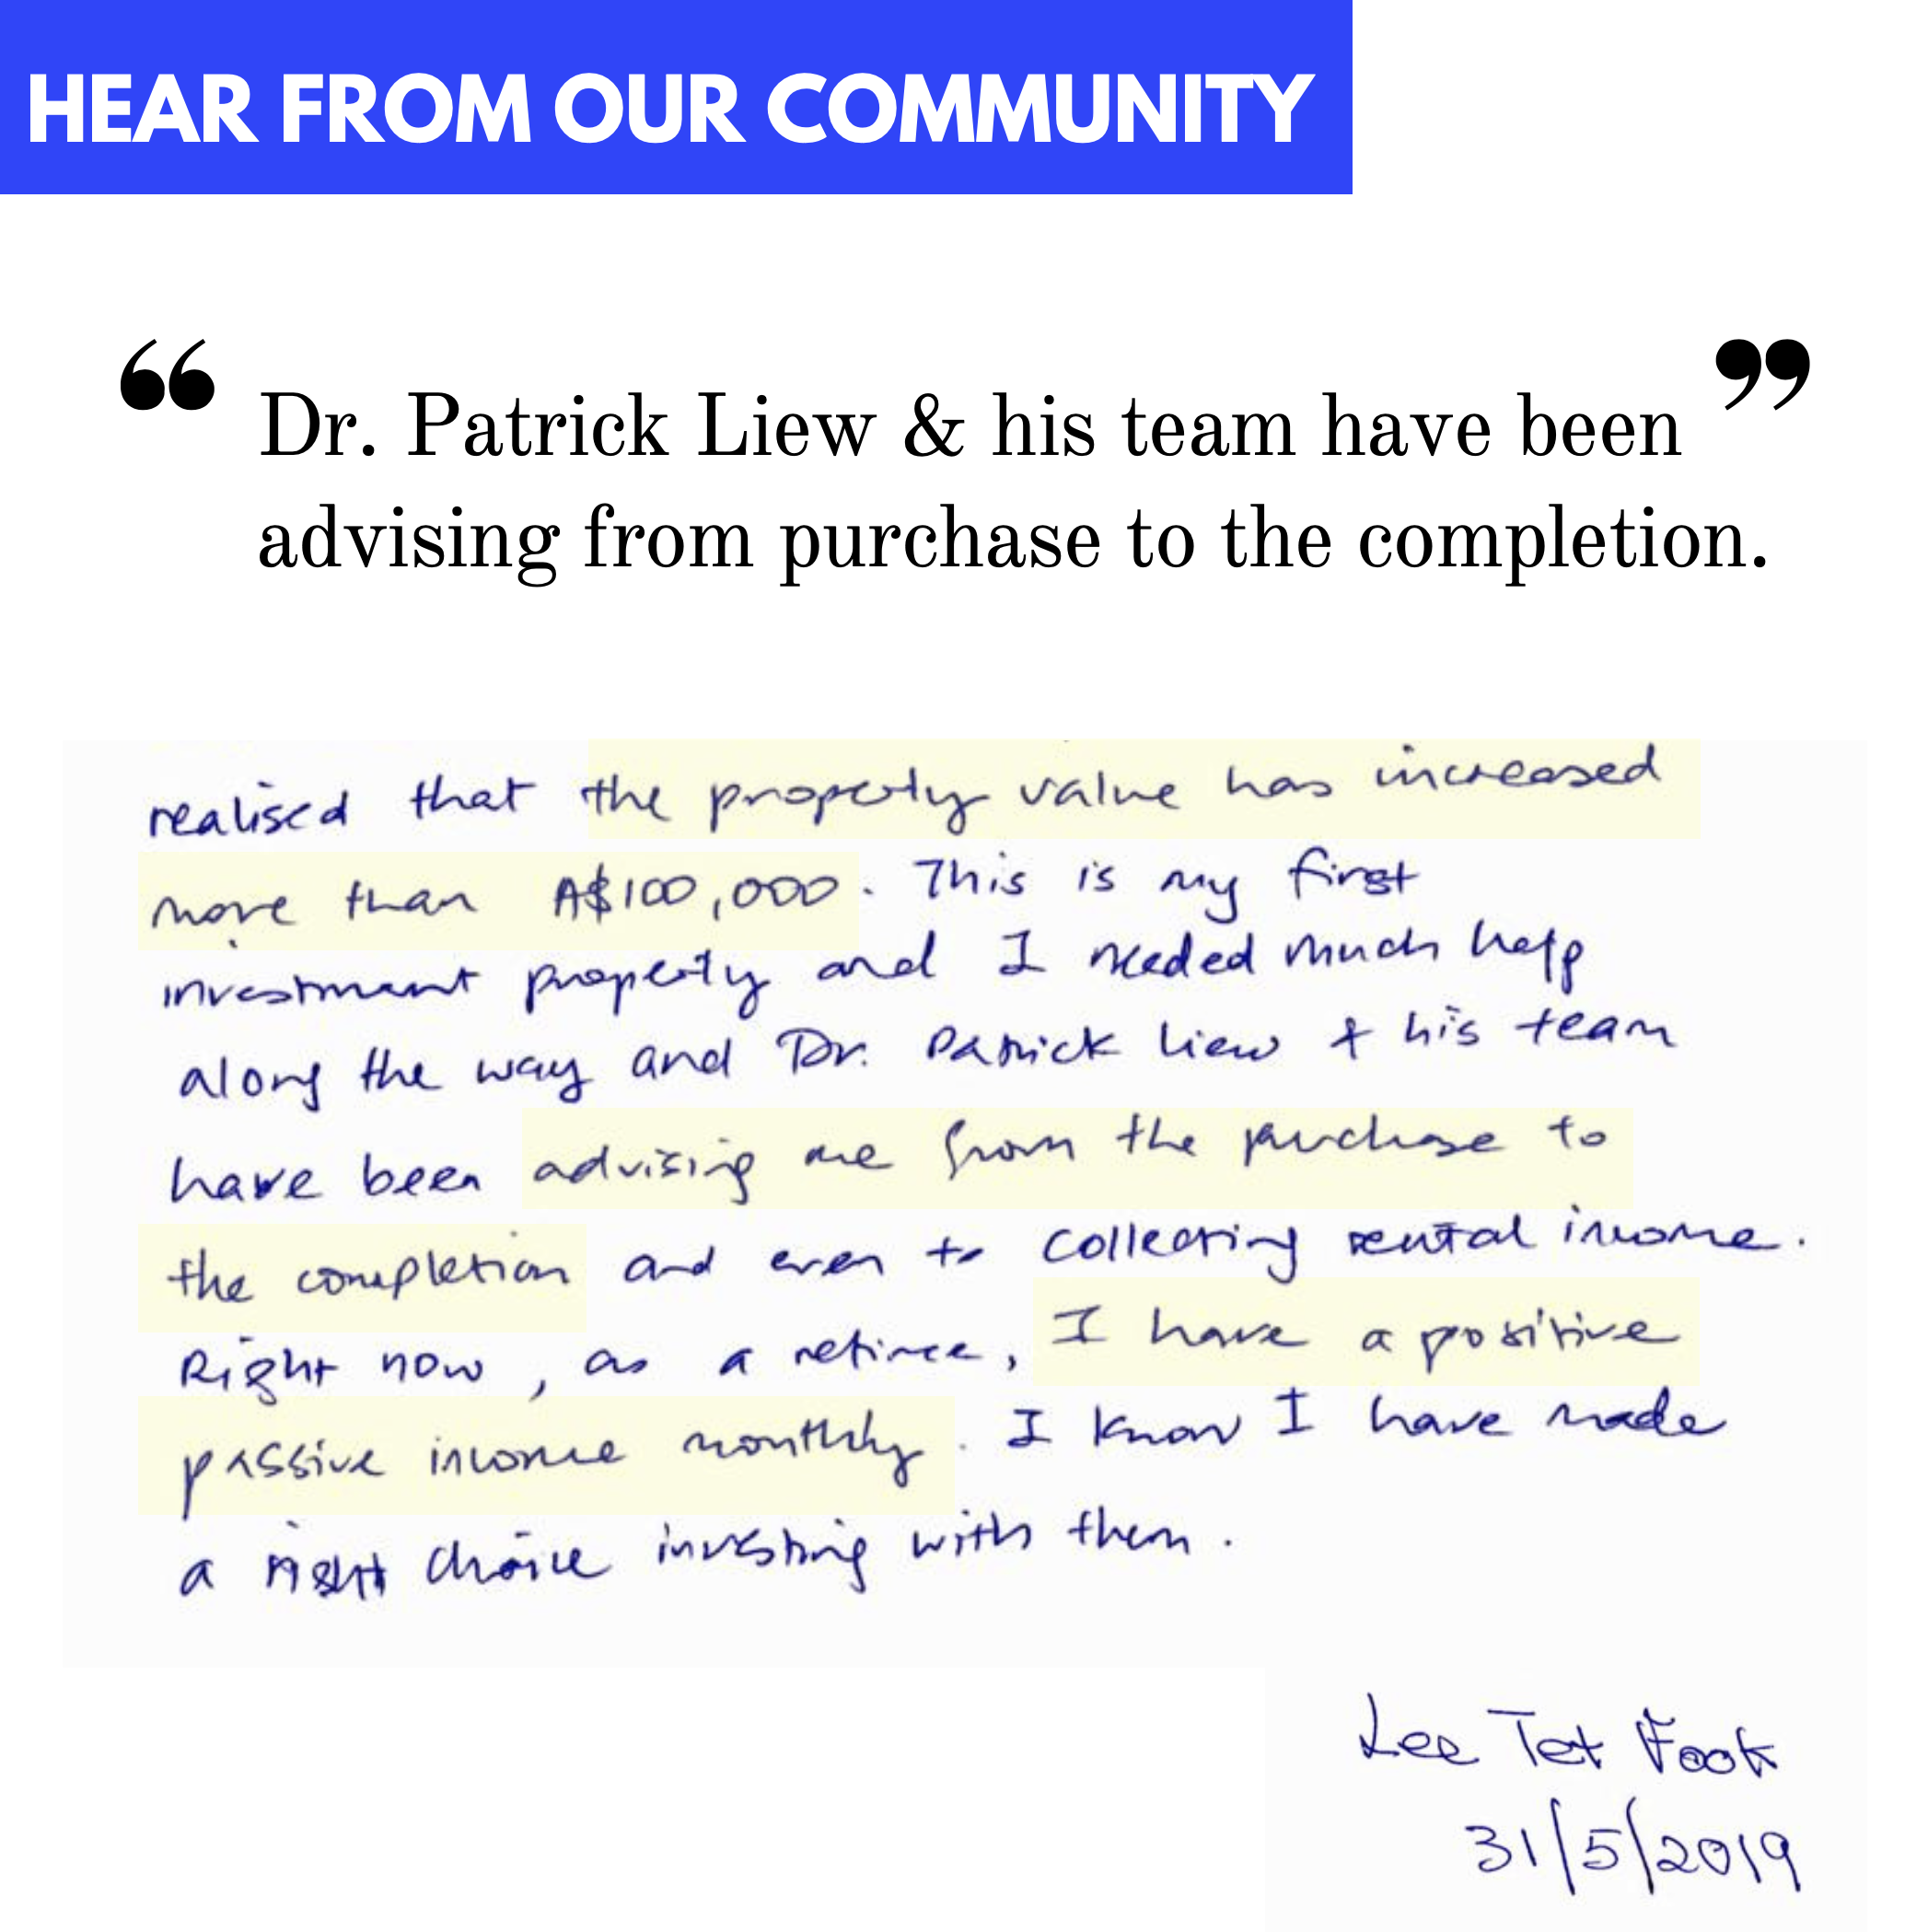 HEAR FROM OUR COMMUNITY
“ Dr. Patrick Liew & his team have been ”
advising from purchase to the completion.
realised that the property value has increased
more than A$100,000. This is my first
investment property and I needed much help
along the way and Dr. Patrick Liew & his team
have been advising me from the purchase to
the completion and even to collecting rental income.
Right now, as a retiree, I have a positive
passive income monthly. I know I have made
a right choice investing with them.
Lee Tet Fook
31/5/2019